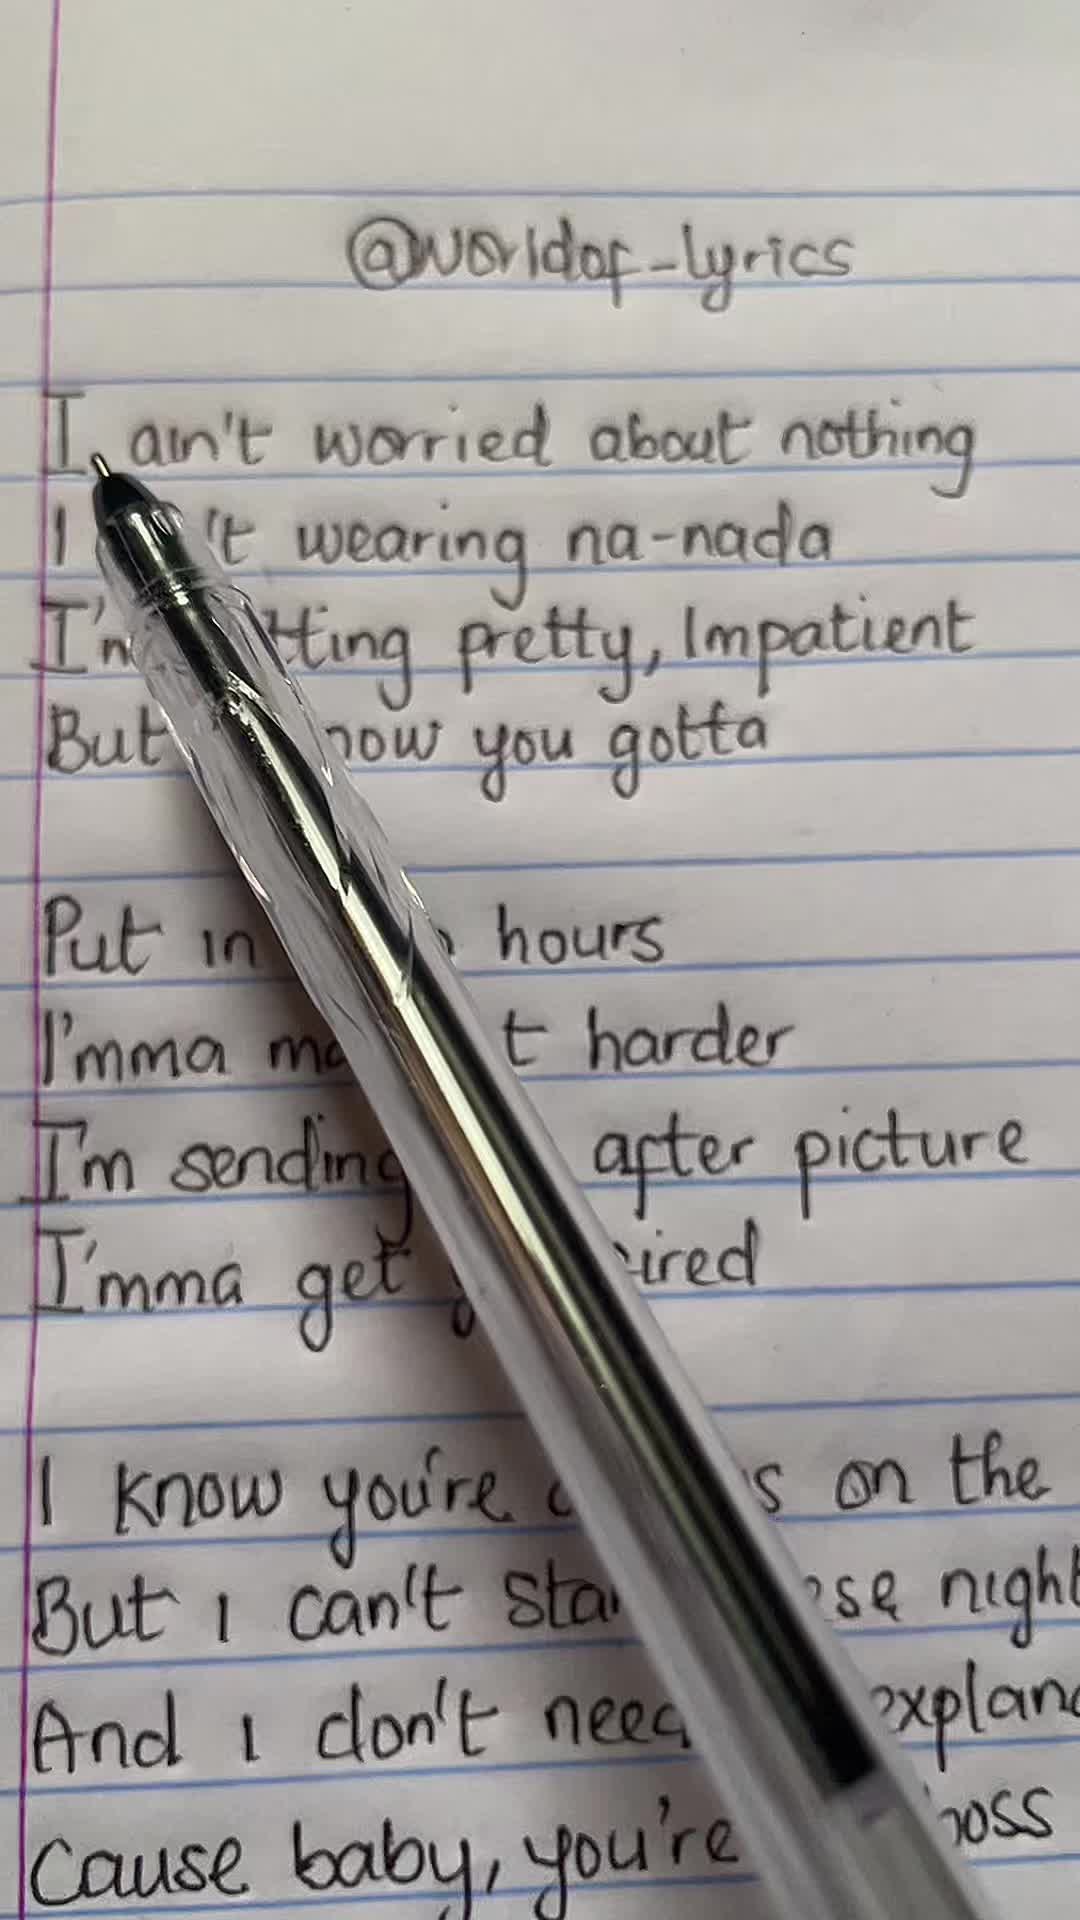 @worldof_lyrics
I ain't worried about nothing
I 't wearing na-nada
I'm tting pretty, Impatient
But now you gotta
Put in hours
I'mma t harder
I'm sending after picture
I'mma get ired
I know you're s on the
But I can't ese night
And I don't need explana
Cause baby, you're boss